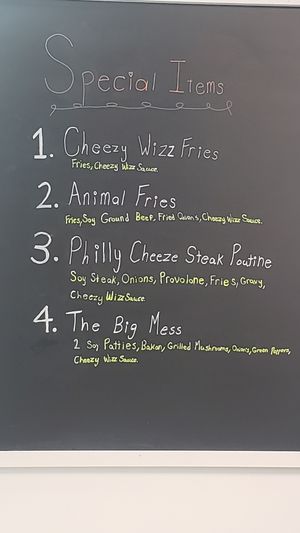 Special Items
1. Cheezy Wizz Fries
Fries, Cheezy Wizz Sauce.
2. Animal Fries
Fries, Soy Ground Beef, Fried Onions, Cheezy Wizz Sauce.
3. Philly Cheeze Steak Poutine
Soy Steak, Onions, Provolone, Fries, Gravy,
Cheezy Wizz Sauce
4. The Big Mess
2 Soy Patties, Bakon, Grilled Mushrooms, Onions, Green Peppers,
Cheezy Wizz Sauce.